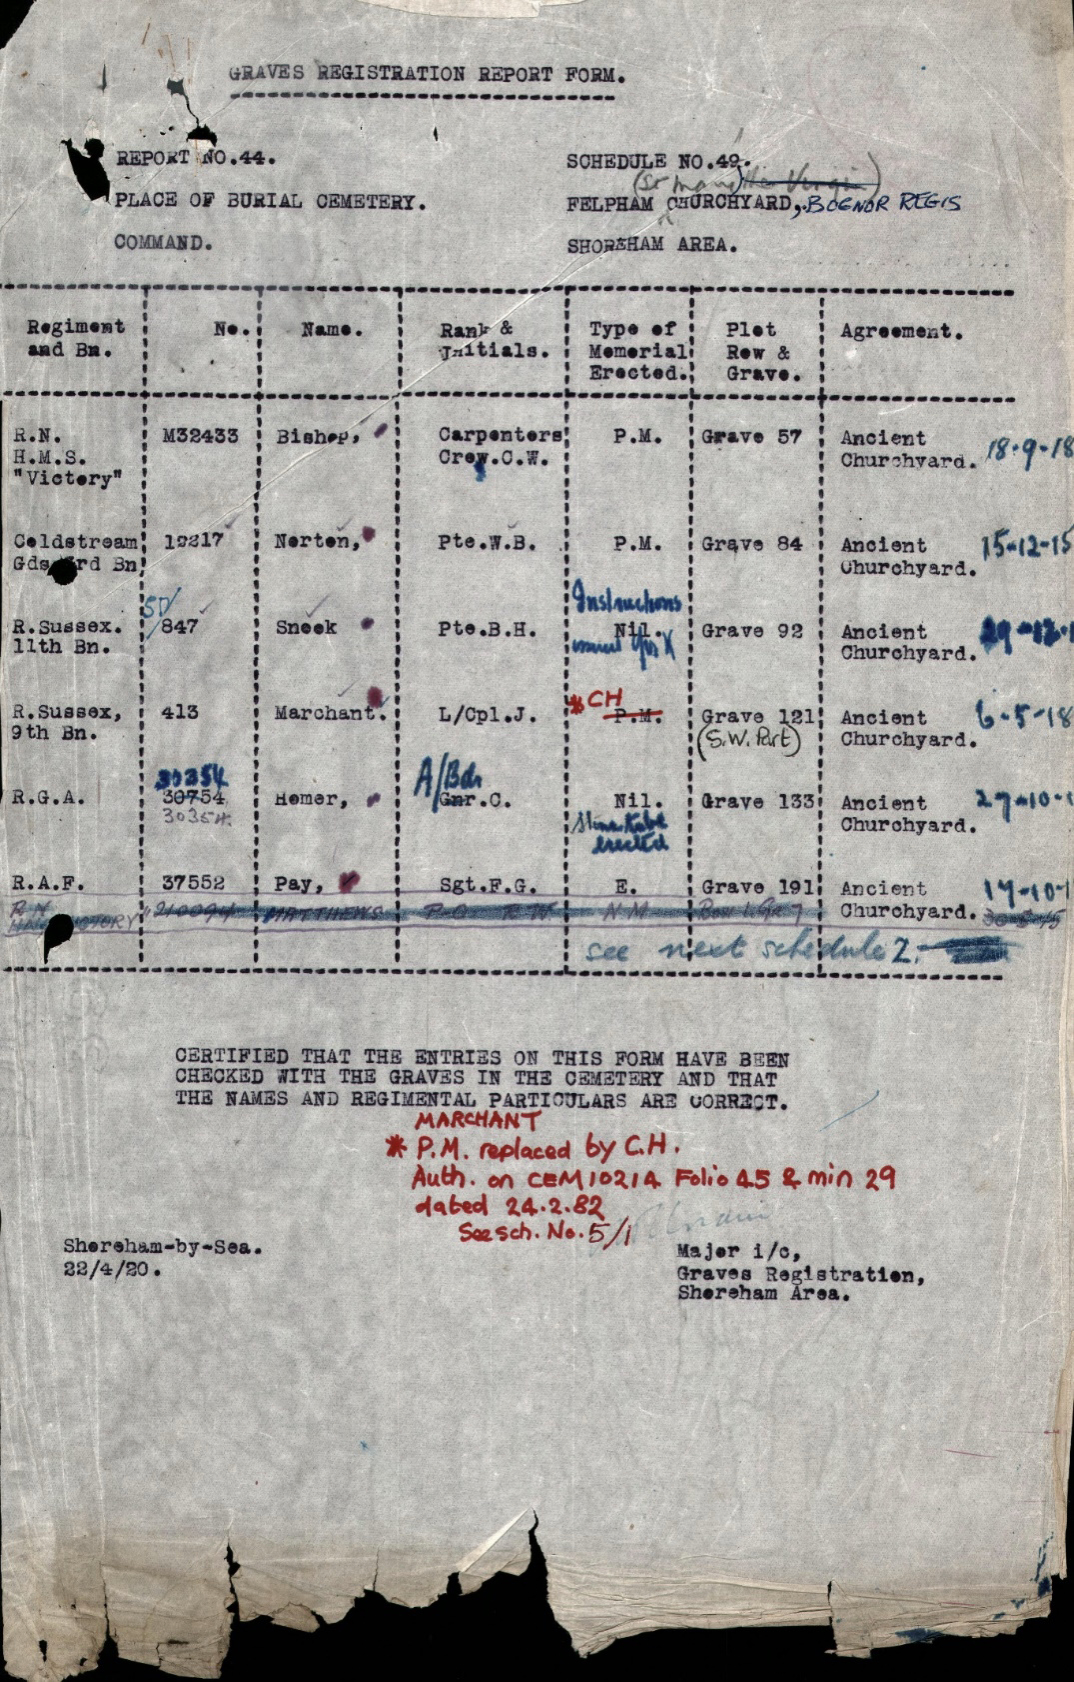 GRAVES REGISTRATION REPORT FORM.
REPORT NO.44.
SCHEDULE NO.49.
(St Mary the Virgin)
PLACE OF BURIAL CEMETERY.
FELPHAM CHURCHYARD, BOGNOR REGIS
COMMAND.
SHOREHAM AREA.
Regiment and Bn. No. Name. Rank & Initials. Type of Memorial Erected. Plot Row & Grave. Agreement.
R.N. M32433 Bishop, Carpenters P.M. Grave 57 Ancient 18-9-18
H.M.S. Crew.C.W. Churchyard.
"Victory"
Coldstream 19217 Norton, Pte.W.B. P.M. Grave 84 Ancient 15-12-15
Gds. 3rd Bn Churchyard.
SD/ Instructions
R.Sussex. 847 Sneek Pte.B.H. Nil. Grave 92 Ancient
11th Bn. issued Churchyard.
* CH
R.Sussex, 413 Marchant. L/Cpl.J. P.M. Grave 121 Ancient 6-5-18
9th Bn. (S.W. Part) Churchyard.
30354 A/Bdr
R.G.A. 30754 Homer, Gnr.C. Nil. Grave 133 Ancient 27-10-
30354. Churchyard.
erected
R.A.F. 37552 Pay, Sgt.F.G. E. Grave 191 Ancient 17-10-1
R.N. 210094 MATTHEWS P.O. R.W. N.M. Row 1. Gr 7 Churchyard.
VICTORY"
see next schedule 2.
CERTIFIED THAT THE ENTRIES ON THIS FORM HAVE BEEN
CHECKED WITH THE GRAVES IN THE CEMETERY AND THAT
THE NAMES AND REGIMENTAL PARTICULARS ARE CORRECT.
MARCHANT
* P.M. replaced by C.H.
Auth. on CEM1021A Folio 45 & min 29
dated 24.2.82
See sch. No. 5/1
Shoreham-by-Sea.
22/4/20.
Major i/c,
Graves Registration,
Shoreham Area.